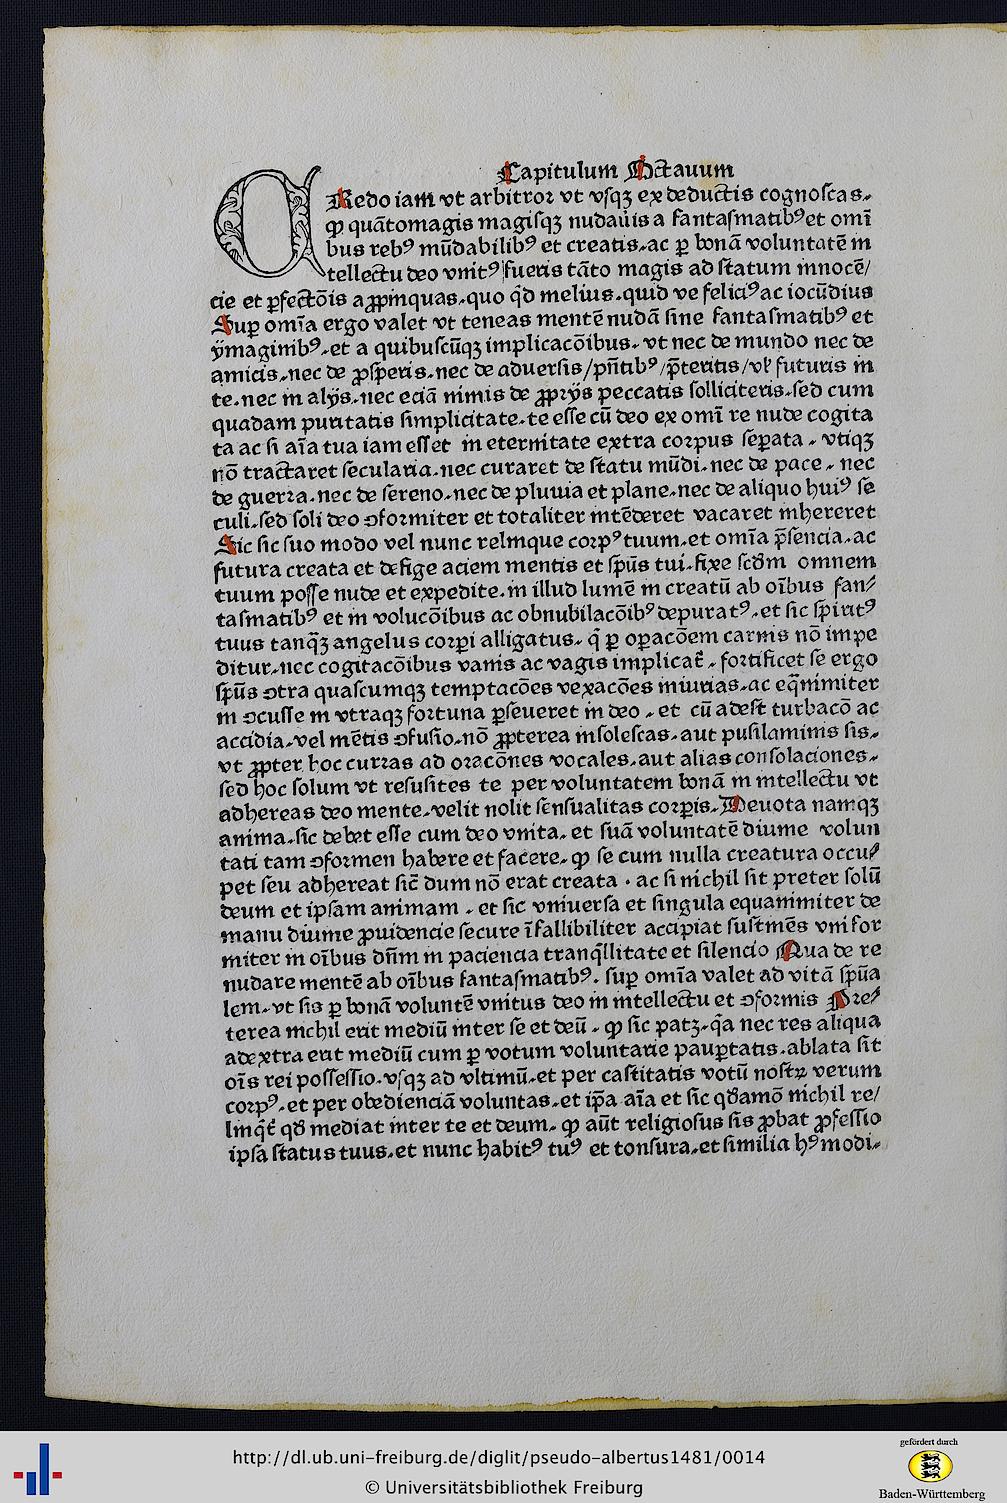 Capitulum Octauum
CRedo iam vt arbitror vt vsqꝫ ex deductis cognoscas.
ꝙ quãtomagis magisqꝫ nudaũis a fantasmatibꝰ et omĩ
bus rebꝰ mũdabilibꝰ et creatis.ac ꝑ bonã voluntatẽ in
tellectu deo vnitꝰ fueris tãto magis ad statum innocẽ/
cie et ꝑfectõis aꝓpinquas.quo qͥd melius.quid ve feliciꝰ ac iocũdius
Suꝑ omĩa ergo valet vt teneas mentẽ nudã sine fantasmatibꝰ et
ẏmaginibꝰ.et a quibuscũqꝫ implicacõibus. vt nec de mundo nec de
amicis.nec de ꝓsꝑeris.nec de aduersis/pñtibꝰ/p̃teritis/vꝉ futuris in
te.nec in alijs.nec eciã nimis de ꝓprijs peccatis solliciteris.sed cum
quadam puritatis simplicitate.te esse cũ deo ex omĩ re nude cogita
ta ac si aĩa tua iam esset in eternitate extra corpus seꝑata. vtiqꝫ
nõ tractaret secularia.nec curaret de statu mũdi.nec de pace. nec
de guerra.nec de sereno.nec de pluuia et plane.nec de aliquo huiꝰ se
culi.sed soli deo ↄformiter et totaliter intẽderet vacaret inhereret
Sic sic suo modo vel nunc relinque corpꝰ tuum.et omĩa p̃sencia.ac
futura creata et defige aciem mentis et sp̃us tui.fixe scdm̃ omnem
tuum posse nude et expedite.in illud lumẽ in creatũ ab oĩbus fan/
tasmatibꝰ et in volucõibus ac obnubilacõibꝰ depuratꝰ.et sic sp̃iritꝰ
tuus tanqꝫ̃ angelus corꝑi alligatus. q̃ ꝑ oꝑacõem carnis nõ impe
ditur.nec cogitacõibus vanis ac vagis implicat̃. fortificet se ergo
sp̃us ↄtra quascumqꝫ temptacões vexacões iniurias.ac eq̃nimiter
in ↄcusse in vtraqꝫ fortuna ꝑseueret in deo. et cũ adest turbacõ ac
accidia.vel mẽtis ↄfusio.nõ ꝓpterea insolescas.aut pusilaminis sis.
vt ꝓpter hoc curras ad oracõnes vocales.aut alias consolaciones.
sed hoc solum vt resusites te per voluntatem bonã in intellectu vt
adhereas deo mente.velit nolit sensualitas corꝑis.Deuota namqꝫ
anima.sic debet esse cum deo vnita. et suã voluntatẽ diuine volun
tati tam ↄformen habere et facere. ꝙ se cum nulla creatura occu/
pet seu adhereat sic̃ dum nõ erat creata . ac si nichil sit preter solũ
deum et ipsam animam . et sic vniuersa et singula equanimiter de
manu diuine ꝓuidencie secure ĩfallibiliter accipiat sustinẽs vnifor
miter in oĩbus dñm in paciencia tranqͥllitate et silencio Qua de re
nudare mentẽ ab oĩbus fantasmatibꝰ. suꝑ omĩa valet ad vitã sp̃ua
lem.vt sis ꝑ bonã voluntẽ vnitus deo in intellectu et ↄformis Pre/
terea nichil erit mediũ inter se et deũ. ꝙ sic patꝫ.qͣa nec res aliqua
adextra erit mediũ cum ꝑ votum voluntarie pauꝑtatis.ablata sit
oĩs rei possessio.vsqꝫ ad vltimũ.et per castitatis votũ nostꝝ verum
corpꝰ.et per obedienciã voluntas.et ip̃a aĩa et sic qd̃amõ nichil re/
linq̃t̃ qd̃ mediat inter te et deum. ꝙ aũt religiosus sis ꝓbat ꝓfessio
ipsa status tuus.et nunc habitꝰ tuꝰ et tonsura.et similia hꝰmodi.
http://dl.ub.uni-freiburg.de/diglit/pseudo-albertus1481/0014
© Universitätsbibliothek Freiburg
gefördert durch
Baden-Württemberg